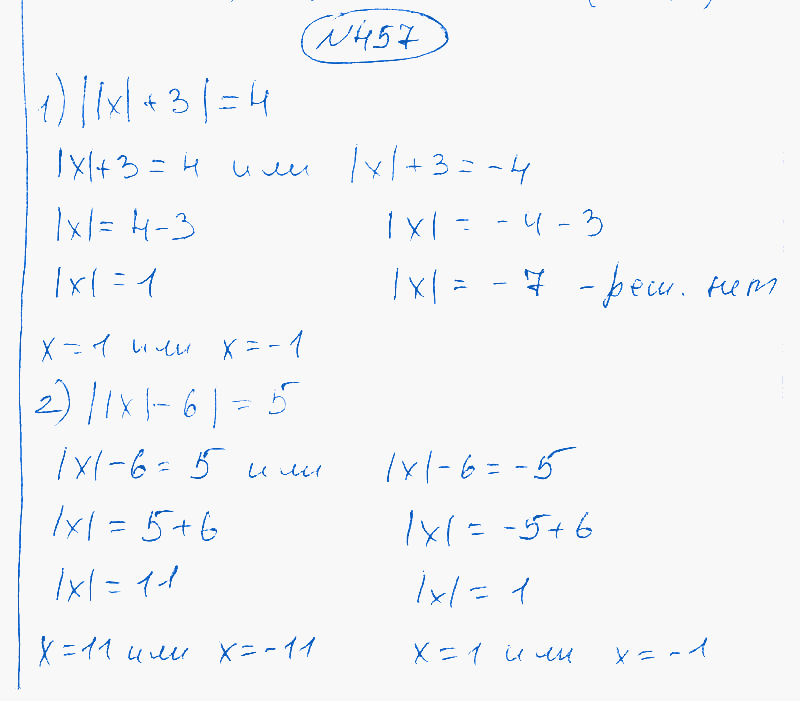 №457
1) ||x| + 3| = 4
|x|+3 = 4 или |x|+3 = -4
|x| = 4-3 |x| = -4-3
|x| = 1 |x| = -7 - реш. нет
x=1 или x=-1
2) ||x|-6| = 5
|x|-6 = 5 или |x|-6 = -5
|x| = 5+6 |x| = -5+6
|x| = 11 |x| = 1
x=11 или x=-11 x=1 или x=-1